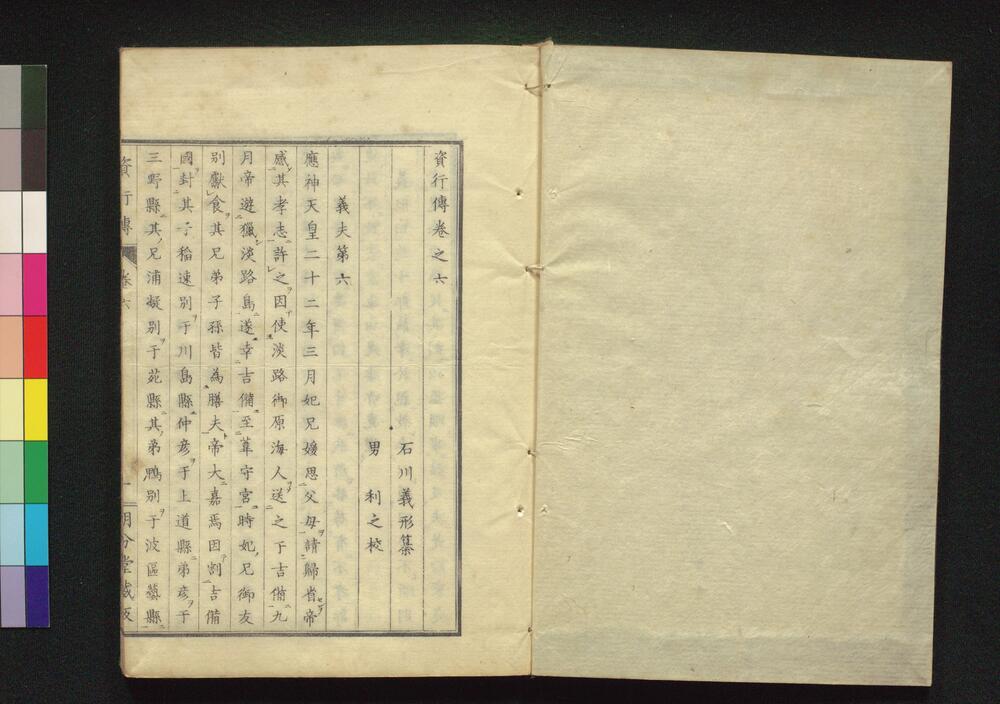 資行傳卷之六
石川義形纂
男　利之校
義夫第六
應神天皇二十二年三月妃兄媛思父母請歸省帝
感其孝志許之因使淡路御原海人送之于吉備九
月帝遊獵淡路島遂幸吉備至葦守宮時妃兄御友
別獻食其兄弟子孫皆為膳夫帝大嘉焉因割吉備
國封其子稻速別于川島縣仲彥于上道縣弟彥于
三野縣其兄浦凝別于苑縣其弟鴨別于波區藝縣
資行傳　卷六　一　明分堂藏版